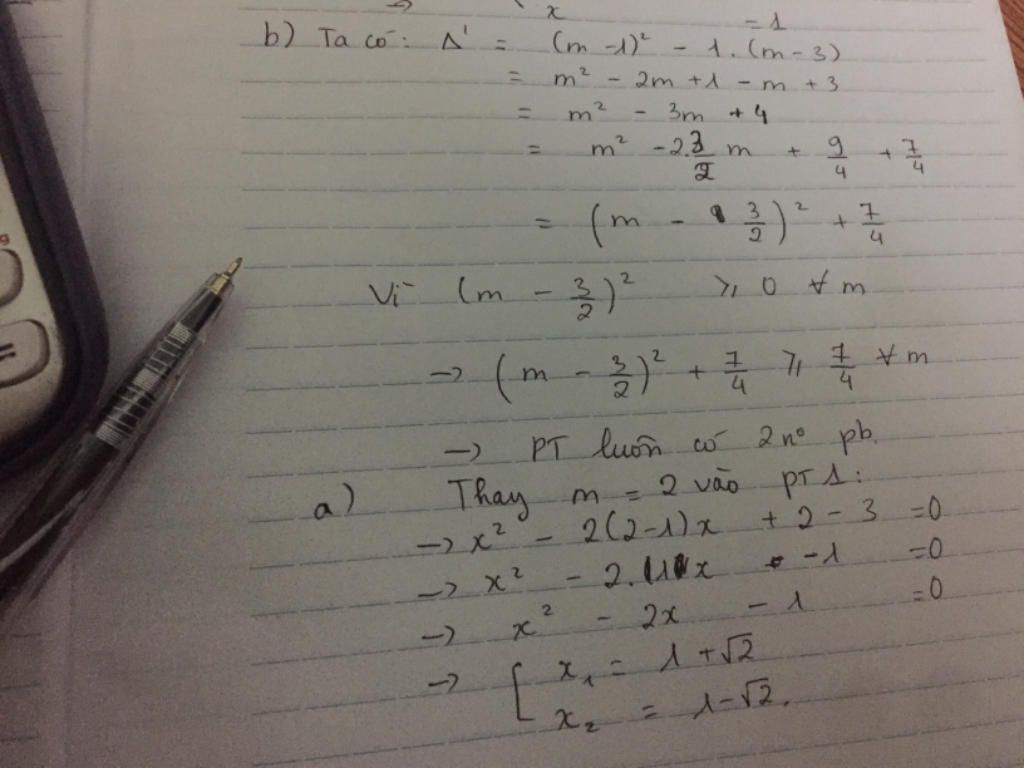 x = 1
b) Ta có: Δ' = (m - 1)² - 1.(m - 3)
= m² - 2m + 1 - m + 3
= m² - 3m + 4
= m² - 2.3/2 m + 9/4 + 7/4
= (m - 3/2)² + 7/4
Vì (m - 3/2)² ⩾ 0 ∀ m
→ (m - 3/2)² + 7/4 ⩾ 7/4 ∀ m
→ PT luôn có 2 nº pb.
a) Thay m = 2 vào PT 1:
→ x² - 2(2-1)x + 2 - 3 = 0
→ x² - 2.1x - 1 = 0
→ x² - 2x - 1 = 0
→ [ x₁ = 1 + √2
x₂ = 1 - √2.